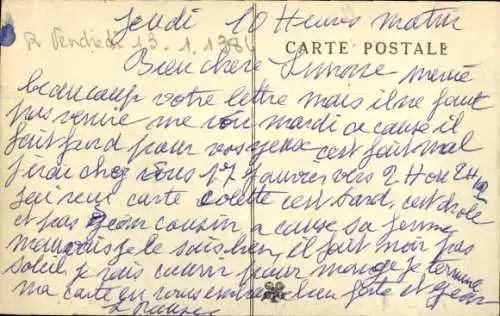 Jeudi 10 Heures matin
R Vendredi 13-1.1384
CARTE POSTALE
Bien chere Simone merci
beaucoup votre lettre mais il ne faut
pas venire me voir mardi a cause il
fait froid pour vos yeux cest fait mal
j'irai chez vous 17 Janvier vers 2 H ou 2H 1/2
jai reçu carte colette cest tard, cest drole
et pas Jean cousin a cause sa femme
je le sais bien, il fait noir pas
soleil je vous courir pour mange je termine
ma carte en vous bien forte et Jean